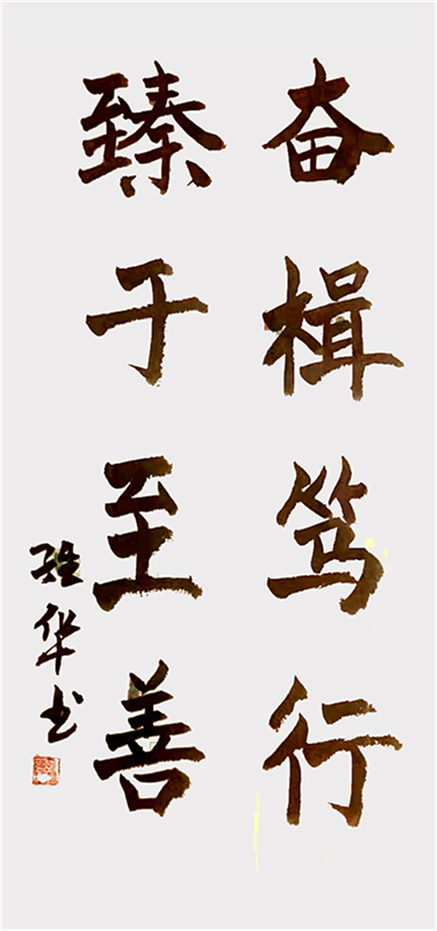 奋楫笃行
臻于至善
华书